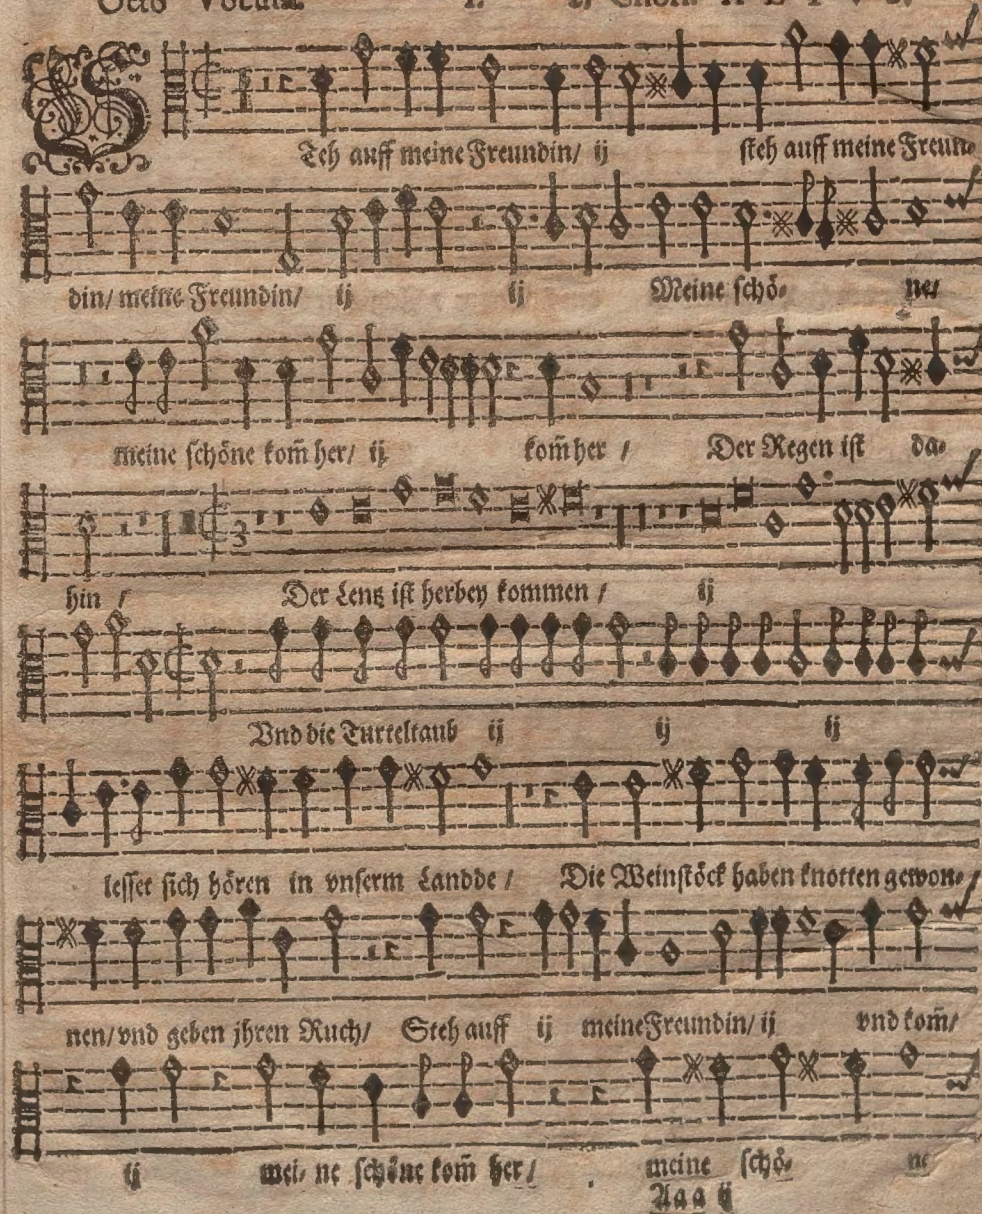 Octo Vocum. I. Chori. A L T V S.
STeh auff meine Freundin/ ij steh auff meine Freun-
din/ meine Freundin/ ij ij Meine schö- ne/
meine schöne kom̃ her/ ij kom̃ her / Der Regen ist da-
hin / Der Lentz ist herbey kommen / ij
Vnd die Turteltaub ij ij ij
lesset sich hören in vnserm Landde / Die Weinstöck haben knotten gewon-
nen/ vnd geben jhren Ruch/ Steh auff ij meine Freundin/ ij vnd kom̃/
ij mei- ne schöne kom̃ her/ meine schö- ne
Aaa ij